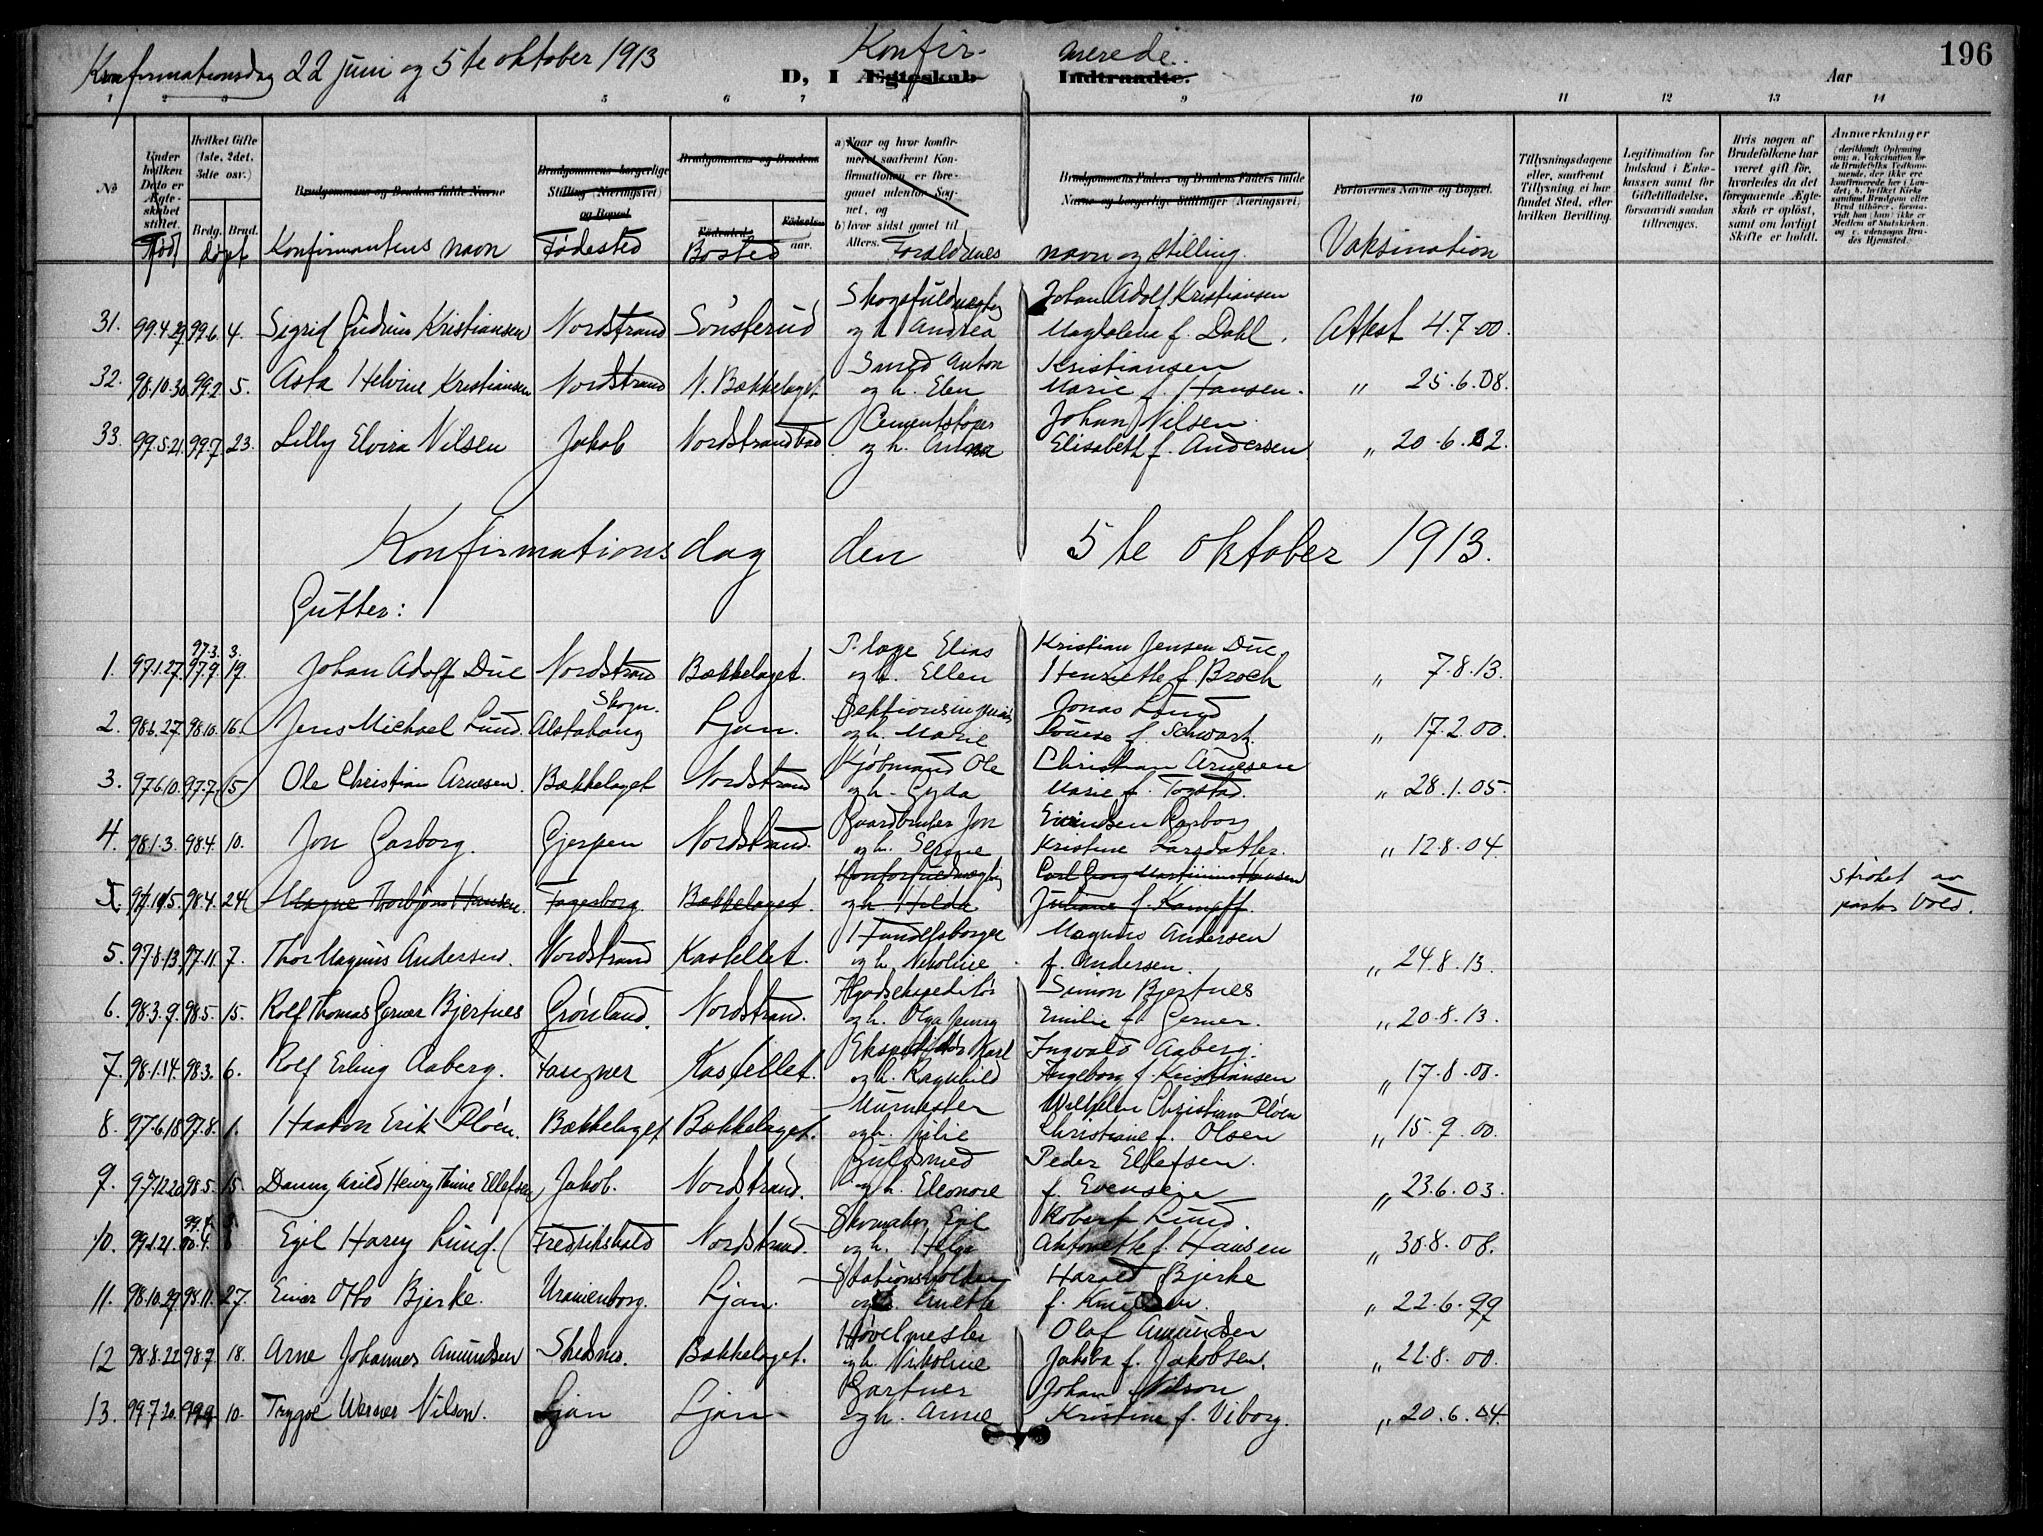 Konfirmationsdag 22 juni og 5te oktober 1913
Konfir- merede.
D, I Ægteskab Indtraadte.
Aar
196
1 2 3 4 5 6 7 8 9 10 11 12 13 14
No
Under hvilken Dato er Ægteskabet stiftet.
Hvilket Gifte (1ste, 2det, 3dte osv.)
Brdg. Brud.
Brudgommens og Brudens fulde Navne
Brudgommens borgerlige Stilling (Næringsvei) og Bopæl
Brudgommens og Brudens
Fødested. Fødselsaar.
a) Naar og hvor konfirmeret saafremt Konfirmationen er foregaaet udenfor Sognet, og
b) hvor sidst gaaet til Alters.
Brudgommens Faders og Brudens Faders fulde Navne og borgerlige Stillinger (Næringsvei)
Forlovernes Navne og Bopæl.
Tillysningsdagene eller, saafremt Tillysning ei har fundet Sted, efter hvilken Bevilling.
Legitimation for Indskud i Enkekassen samt for Giftetilladelse, forsaavidt saadan tiltrænges.
Hvis nogen af Brudefolkene har været gift før, hvorledes da det foregaaende Ægteskab er opløst, samt om lovligt Skifte er holdt.
Anmerkninger (deriblandt Oplysning om: a. Vakcination for de Brudefolks Vedkommende, der ikke ere konfirmerede her i Landet; b. hvilket Kirkesamfund Brudgom eller Brud tilhører, forsaavidt han (hun) ikke er Medlem af Statskirken, og c. udensogns Brudes Hjemsted.
Født døpt Konfirmantens navn Fødested Bosted Forældrenes navn og Stilling. Vaksination
Skogsfuldmægtig Johan Adolf Kristiansen
31. 99.4.29 99.6. 4. Sigrid Gudrun Kristiansen Nordstrand Sønsterud og h. Andrea Magdalena f. Dahl. Attest 4.7.00.
Smed Anton Kristiansen
32. 98.10.30 99.2. 5. Asta Helvine Kristiansen Nordstrand N. Bækkelaget og h. Elen Marie f. Hansen. " 25.6.08.
Cementstøper Johan Nilsen
33. 99.5.21. 99.7. 23. Lilly Elvira Nilsen Jakob Nordstrandbad og h. Anna Elisabeth f. Andersen " 20.6.02.
Konfirmationsdag den 5te oktober 1913.
Gutter:
97.3. 3. P. læge Elias Kristian Jensen Due
1. 97.1.27. 97.9. 19. Johan Adolf Due Nordstrand Bækkelaget. og h. Ellen Henriette f. Broch " 7.8.13.
Skogn. Sektionsingeniør Jonas Lund
2. 98.6.27. 98.10. 16. Jens Michael Lund. Alstahaug Ljan. og h. Marie Louise f. Schwartz. " 17.2.00.
Kjøbmand Ole Christian Arnesen
3. 97.6.10. 97.7. 15 Ole Christian Arnesen. Bækkelaget Nordstrand og h. Gyda Marie f. Togstad. " 28.1.05.
Gaardbruker Jon Eivindsen Garborg
4. 98.1.3. 98.4. 10. Jon Garborg. Gjerpen Nordstrand. og h. Serine Kristine Larsdatter. " 12.8.04.
Kontorfuldmægtig Carl Georg Martinius Hansen strøket av
5. 97.11.5. 98.4. 24. Magne Thorbjørn Hansen. Fagerborg Bækkelaget. og h. Hilda Juliane f. Kampff. pastor Vold.
Magnus Andersen
5. 97.8.13. 97.11. 7. Thor Magnus Andersen. Nordstrand Kastellet. og h. Nikoline f. Andersen. " 24.8.13.
Simon Bjertnes
6. 98.3.9. 98.5. 15. Rolf Thomas Gerner Bjertnes Grønland. Nordstrand. og h. Olga Jenny Emilie f. Gerner. " 20.8.13.
Ekspeditør Karl Ingvald Aaberg.
7. 98.1.14. 98.3. 6. Rolf Erling Aaberg. Kastellet. og h. Ragnhild Ingeborg f. Kristiansen " 17.8.00.
Murmester Wilhelm Christian Pløen
8. 97.6.18 97.8. 1. Haakon Erik Pløen. Bækkelaget Bækkelaget. og h. Julie Christiane f. Olsen " 15.9.00.
Guldsmed Peder Ellefsen.
9. 97.12.20. 98.5. 15. Danny Arild Henry Ellefsen Jakob. Nordstrand. og h. Eleonore f. Evensen " 23.6.03.
Skomaker Egil Robert Lund.
10. 99.1.21. Egil Harry Lund. Fredrikshald Nordstrand. og h. Helga Antonette f. Hansen " 30.8.08.
Stationsholder Harald Bjerke
11. 98.10.27 98.11. 27. Einar Otto Bjerke. Uranienborg. Ljan. og h. Anette f. Knudsen. " 22.6.99
Høvelmester Olaf Amundsen
12 98.8.22 98.9. 18. Arne Johannes Amundsen Skedsmo. Bækkelaget. og h. Nikoline Jakoba f. Jakobsen. " 22.8.00.
Gartner Johan Nilson
13. 99.7.20. 99.9. 10. Trygve Werner Nilson. Ljan Ljan. og h. Anne Kristine f. Viborg. " 20.6.04.